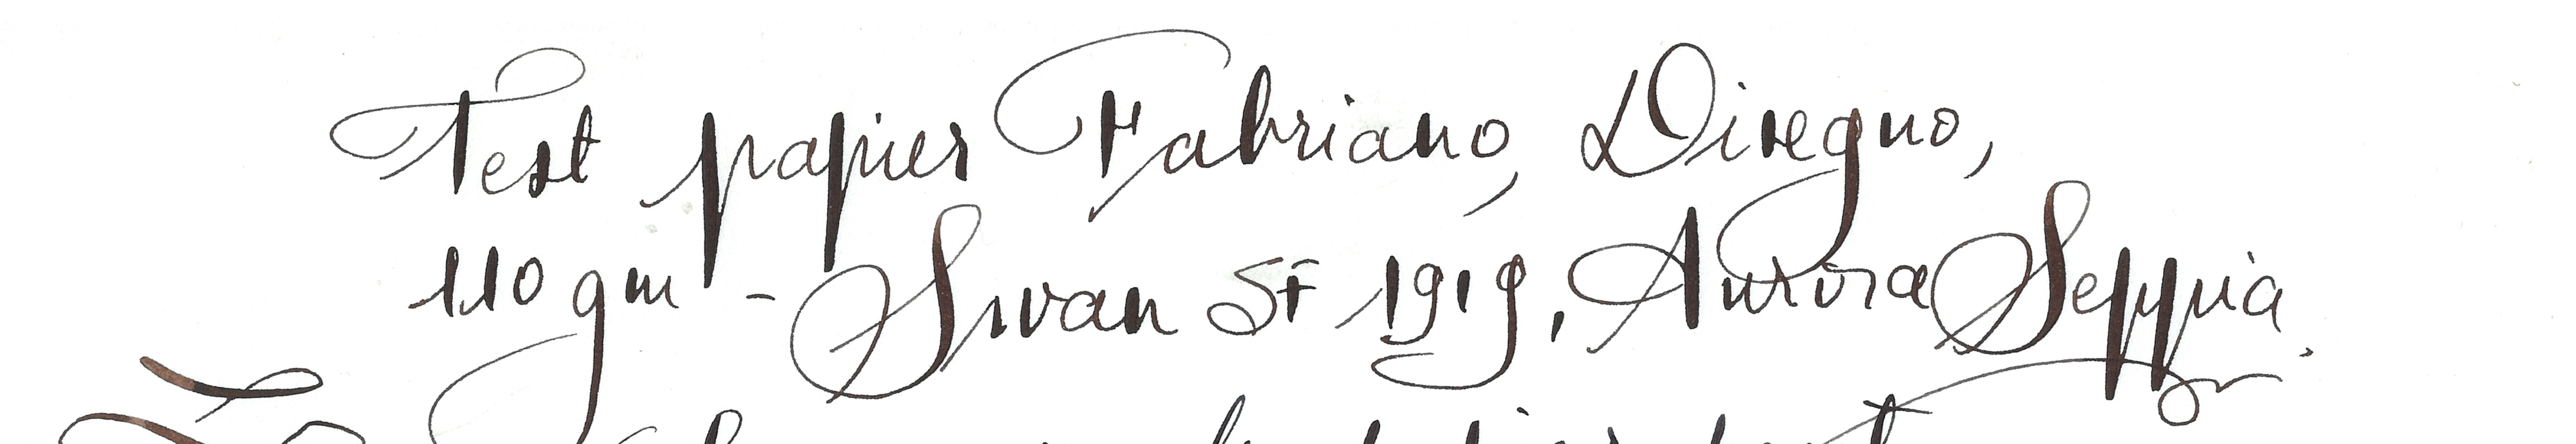 Test papier Fabriano, Disegno,
110 gm - Swan SF 1919, Aurora Seppia.